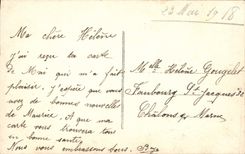 23 Mai 1918
Ma chère Hélène
J'ai reçu ta carte
de Mai qui m'a fait
plaisir. J'espère que vous
avez de bonnes nouvelles
de Maurice. A que ma
carte vous trouvera tous
en bonne santé.
Nous vous embrassons tous.
Melle Hélène
Faubourg St Jacques
Châlons s/ Marne